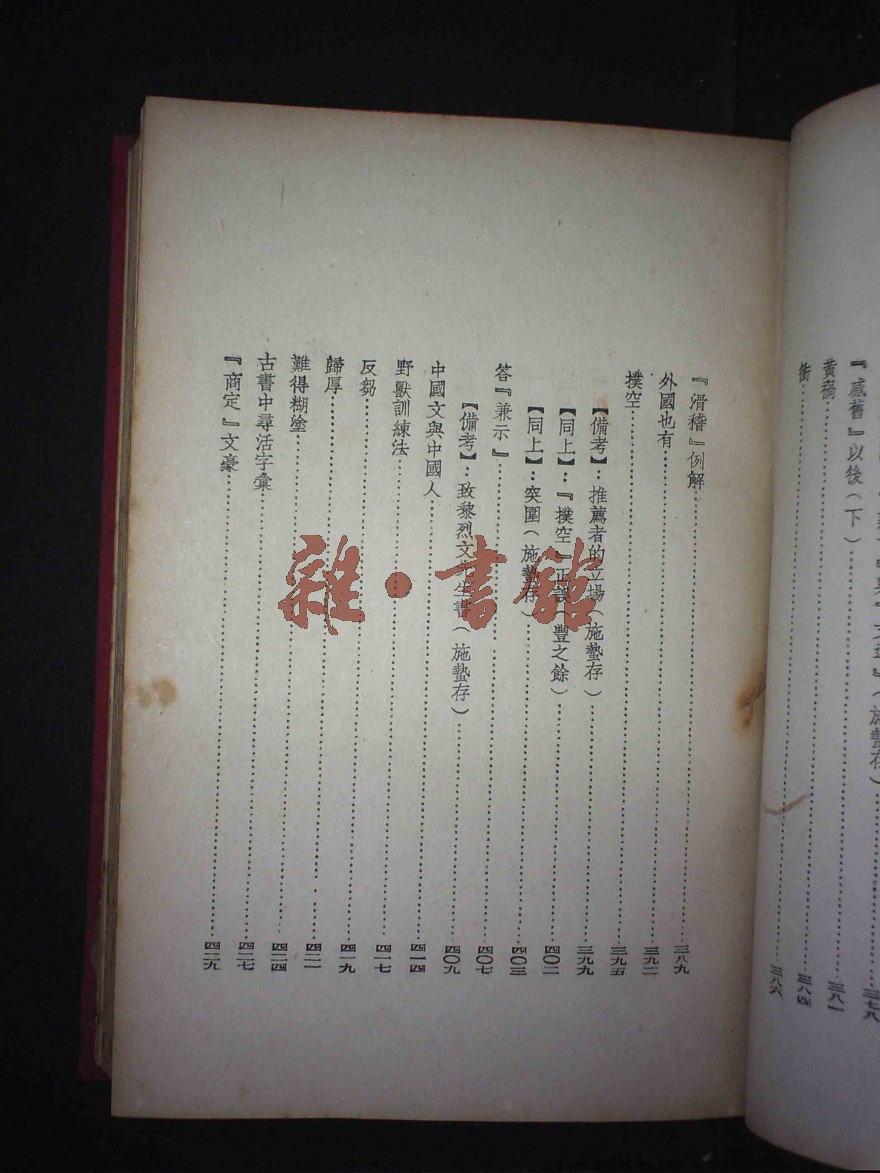 與『文選』(施蟄存)……三七八
『感舊』以後(下)……三八一
黃禍……三八四
衝……三八六
『滑稽』例解……三八九
外國也有……三九二
撲空……三九五
【備考】:推薦者的立場(施蟄存)……三九九
【同上】:『撲空』正誤(豐之餘)……四〇二
【同上】:突圍(施蟄存)……四〇三
答『兼示』……四〇七
【備考】:致黎烈文先生書(施蟄存)……四〇九
中國文與中國人……四一四
野獸訓練法……四一七
反芻……四一九
歸厚……四二一
難得糊塗……四二四
古書中尋活字彙……四二七
『商定』文豪……四二九
雜·書館